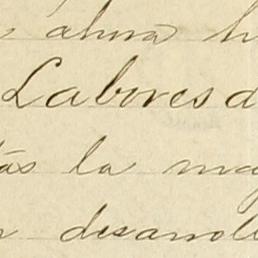 ahora h
Labores d
tas la may
desarroll